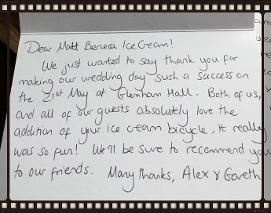 Dear Matt Benecci Ice Cream!
We just wanted to say thank you for
making our wedding day such a success on
the 21st May at Glenham Hall. Both of us,
and all of our guests absolutely love the
addition of your ice cream bicycle, it really
was so fun! We'll be sure to recommend you
to our friends. Many thanks, Alex & Gareth